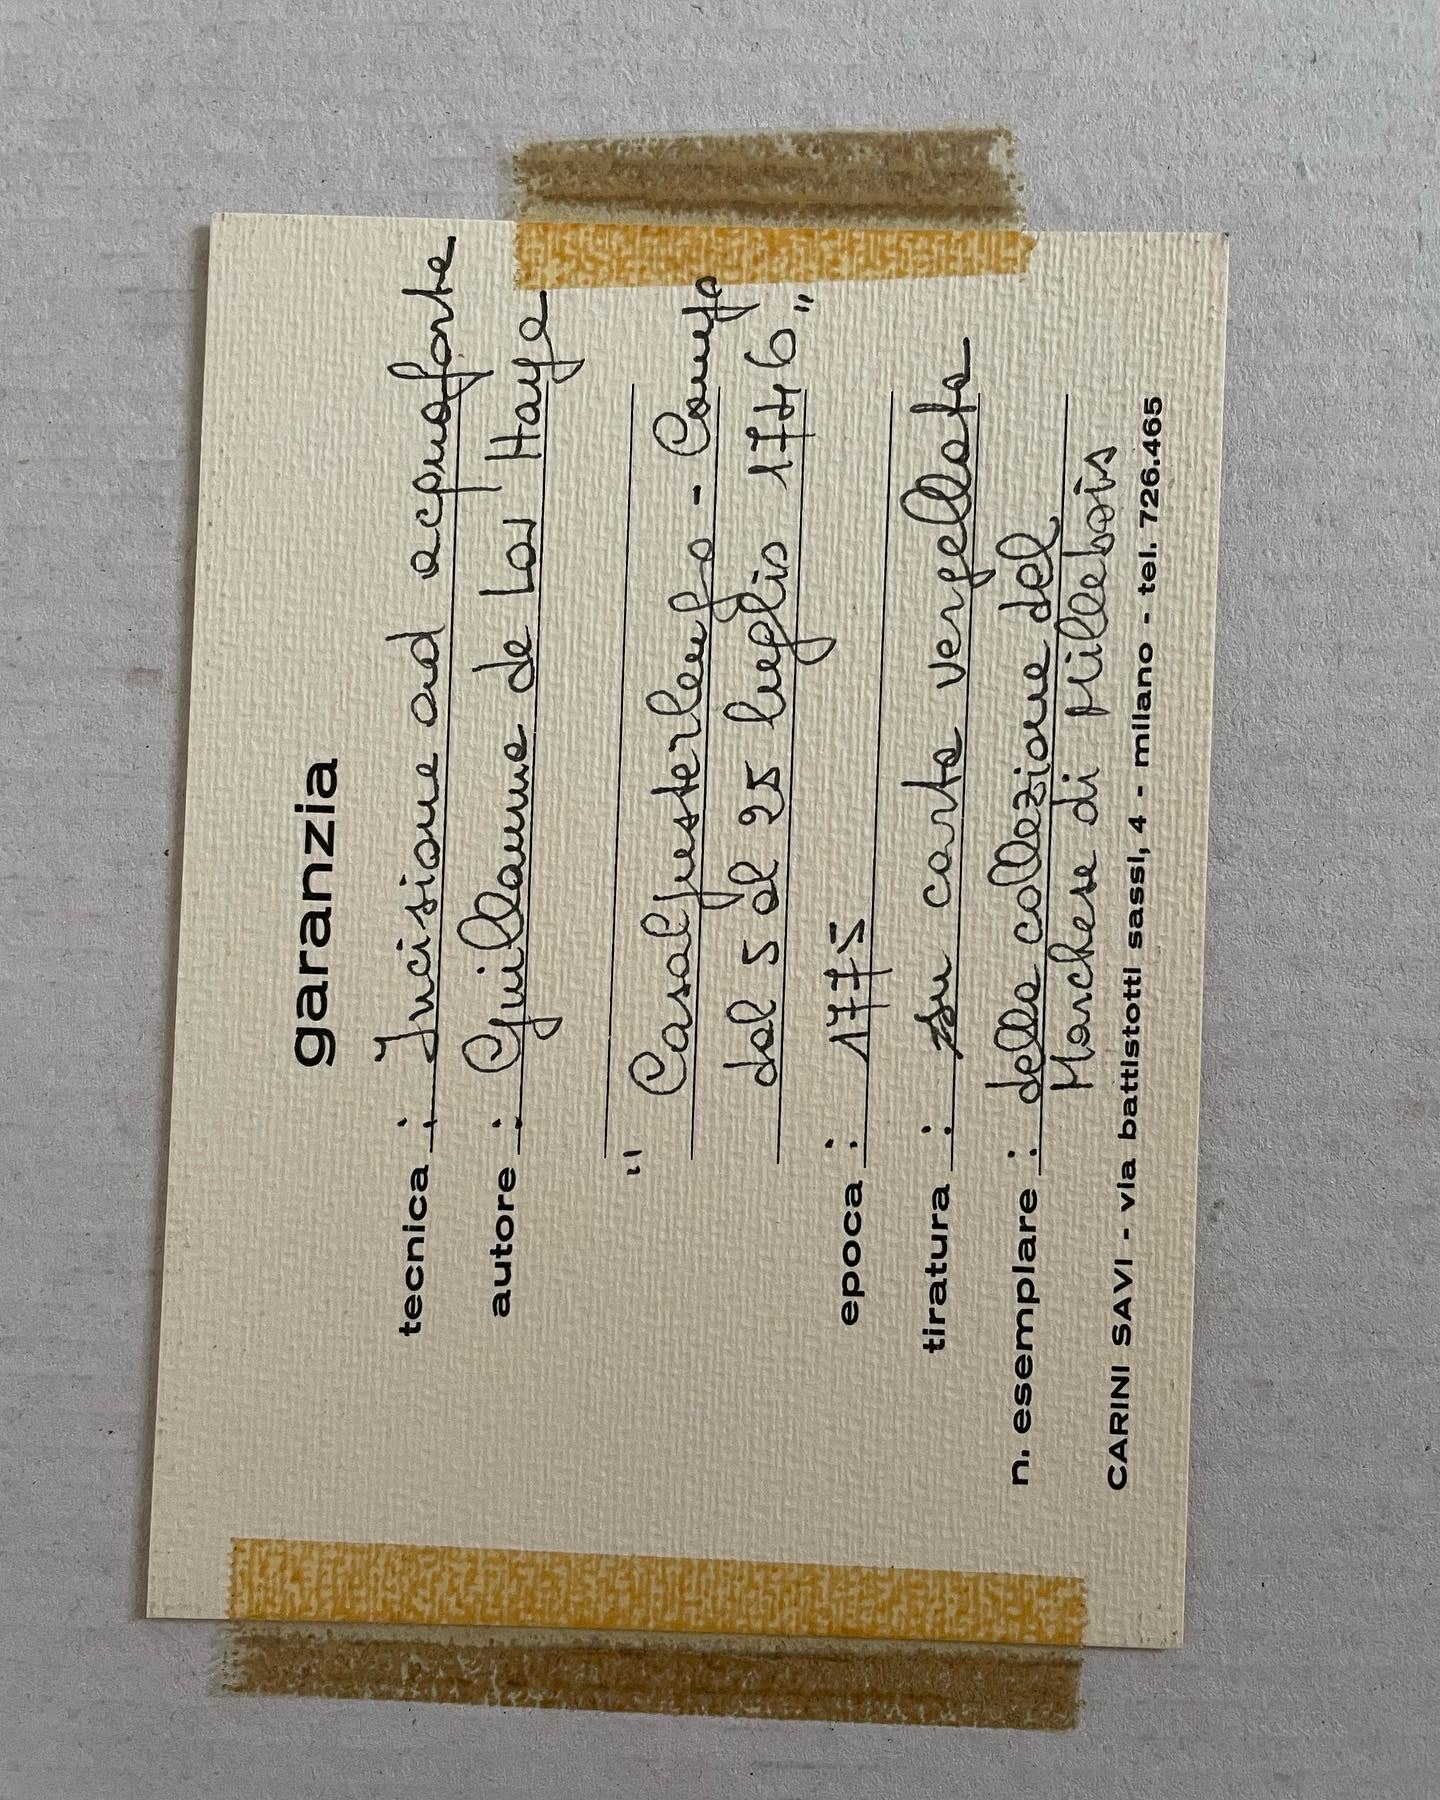 garanzia
tecnica : Incisione ad acquaforte
autore : Guillaume de Las Haye
" Casalpusterlengo - Campo
dal 5 al 25 luglio 1746 "
epoca : 1775
tiratura : su carta vergellata
n. esemplare : dalla collezione del
Marchese di Millebois
CARINI SAVI - via battistotti sassi, 4 - milano - tel. 726.465